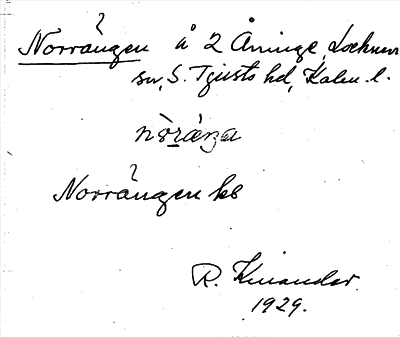 ?
Norrängen å 2 Åninge, Locknevi
sn, S. Tjusts hd, Kalm. l.
nòràŋa
?
Norrängen kb
R. Kinander
1929.